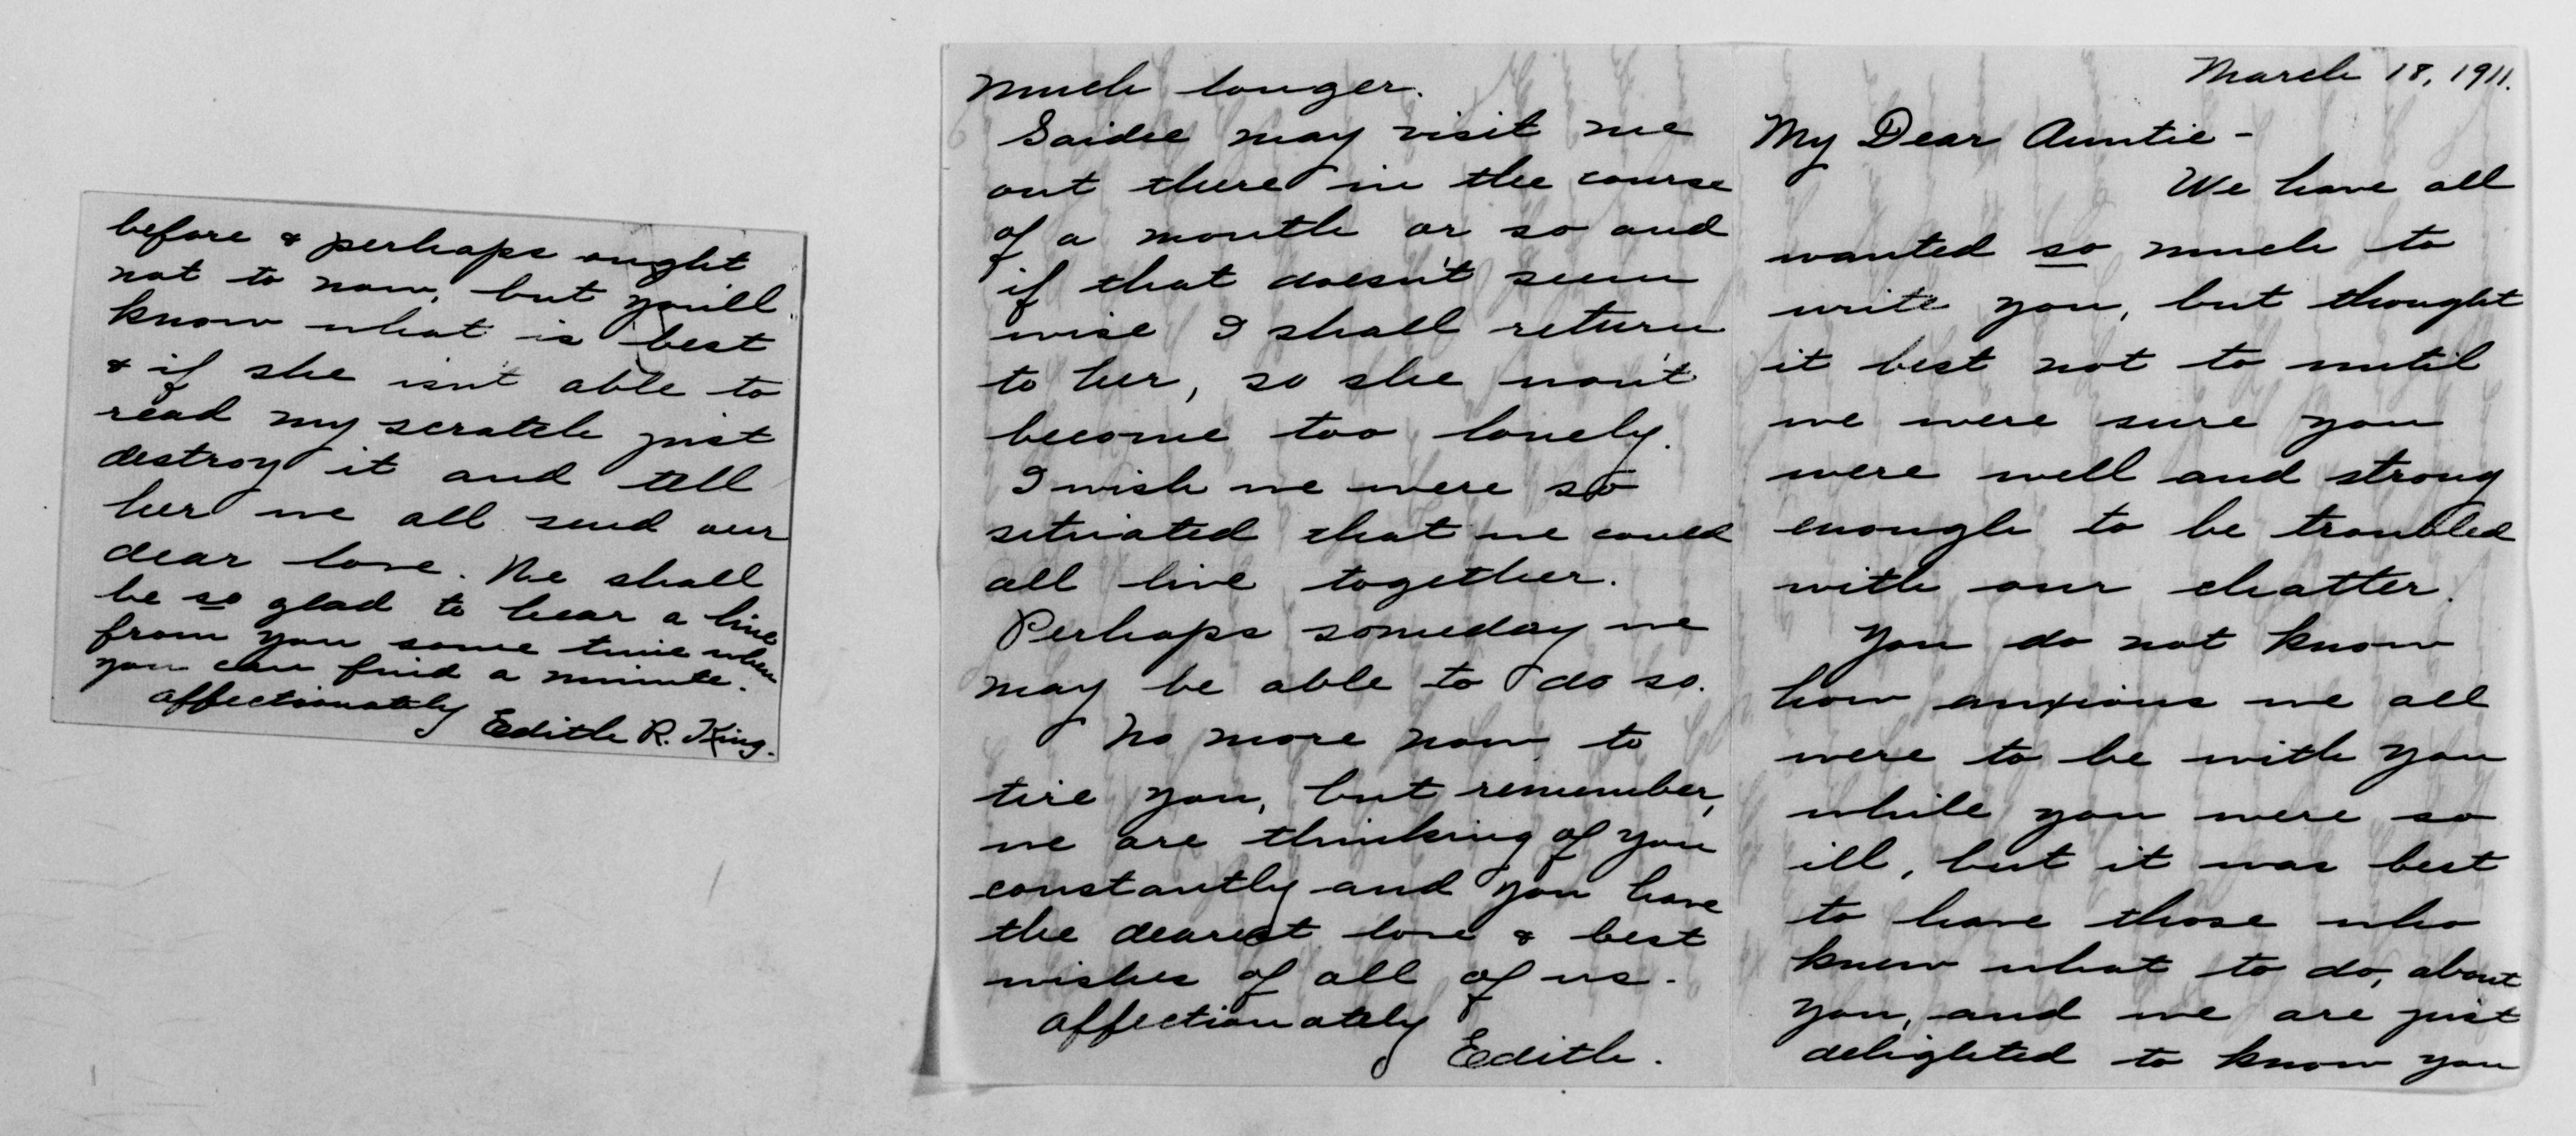 before & perhaps ought
not to now, but you'll
know what is best
& if she isn't able to
read my scratch just
destroy it and tell
her we all send our
dear love. We shall
be so glad to hear a line
from you some time when
you can find a minute.
Affectionately
Edith R. King.
much longer.
Saidee may visit me
out there in the course
of a month or so and
if that doesn't seem
wise I shall return
to her, so she won't
become too lonely.
I wish we were so
situated that we could
all live together.
Perhaps someday we
may be able to do so.
No more now to
tire you, but remember,
we are thinking of you
constantly and you have
the dearest love & best
wishes of all of us.
Affectionately
Edith.
March 18, 1911.
My Dear Auntie -
We have all
wanted so much to
write you, but thought
it best not to until
we were sure you
were well and strong
enough to be troubled
with our chatter.
You do not know
how anxious we all
were to be with you
while you were so
ill, but it was best
to have those who
knew what to do, about
you, and we are just
delighted to know you